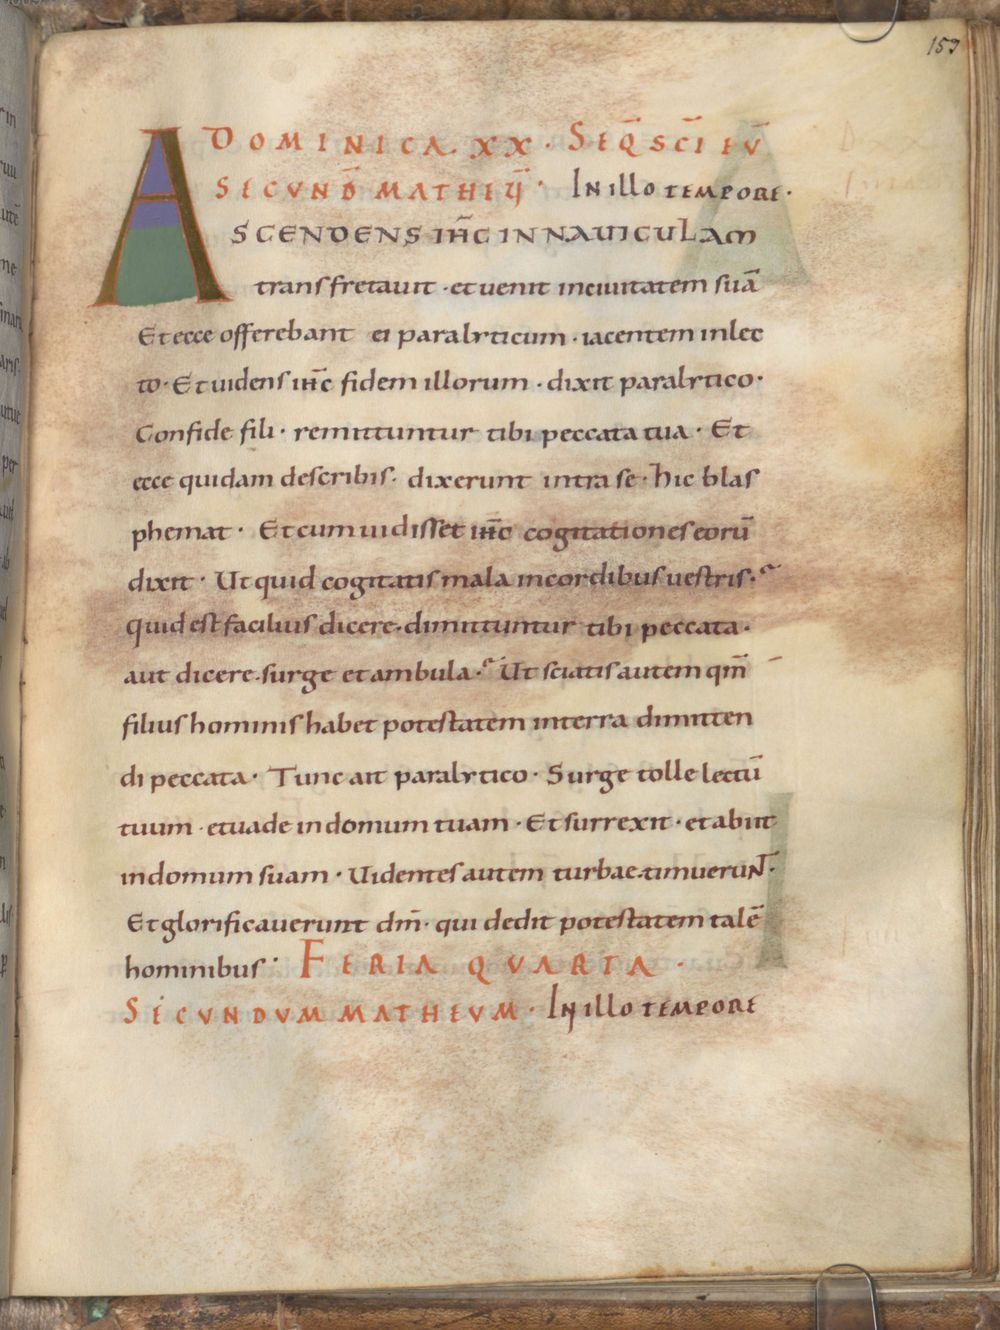 153
DOMINICA. XX. SEQ̄ SC̄I EV̄
SECVND̄ MATHEŪ· IN ILLO TEMPORE·
ASCENDENS IĦC IN NAUICULAM
transfretauit · et uenit in ciuitatem suā
Et ecce offerebant ei paralyticum · iacentem in lec
to · Et uidens iħc fidem illorum · dixit paralytico ·
Confide fili · remittuntur tibi peccata tua · Et
ecce quidam describis · dixerunt intra se · hic blas
phemat · Et cum uidisset iħc cogitationes eorū
dixit · Ut quid cogitatis mala in cordibus uestris ·
quid est facilius dicere · dimittuntur tibi peccata ·
aut dicere · surge et ambula · Ut sciatis autem qm̄
filius hominis habet potestatem in terra dimitten
di peccata · Tunc ait paralytico · Surge tolle lectū
tuum · et uade in domum tuam · Et surrexit · et abiit
in domum suam · Uidentes autem turbae · timuerunt ·
Et glorificauerunt dm̄ · qui dedit potestatem talē
hominibus · FERIA QVARTA ·
SECVNDVM MATHEVM · IN ILLO TEMPORE